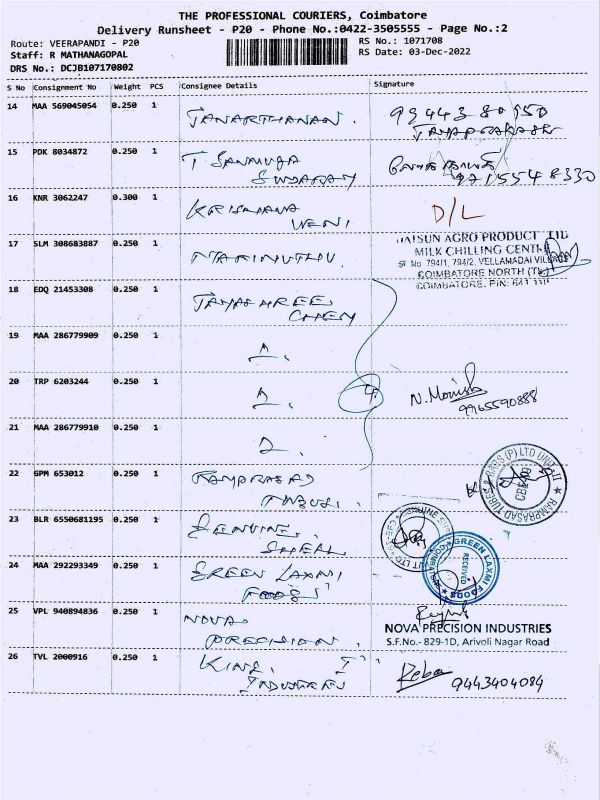 THE PROFESSIONAL COURIERS, Coimbatore
Delivery Runsheet - P20 - Phone No.:0422-3505555 - Page No.:2
Route: VEERAPANDI - P20
Staff: R MATHANAGOPAL
DRS No.: DCJB107170802
RS No.: 1071708
RS Date: 03-Dec-2022
S No Consignment No Weight PCS Consignee Details Signature
14 MAA 569045054 0.250 1 JANARTHANAN. 99443 80150
JAYAPRAKASH
15 PDK 8034872 0.250 1 T SANMUGA
SUNDARAM 971554 8330
16 KNR 3062247 0.300 1 KRISHNA
VENI D/L
17 SLM 308683887 0.250 1 MARIMUTHU. HATSUN AGRO PRODUCT LTD
MILK CHILLING CENTRE
SF No 794/1, 794/2, VELLAMADAI VILLAGE
COIMBATORE NORTH (TK)
COIMBATORE. PIN: 641 110
18 EDQ 21453308 0.250 1 JAYASHREE
CHEM
19 MAA 286779909 0.250 1
20 TRP 6203244 0.250 1 4 N. Monish
9965590888
21 MAA 286779910 0.250 1
22 GPM 653012 0.250 1 RAMPRASAD
RAMPRASAD TUBES & BARS (P) LTD UNIT II
CBE
23 BLR 6550681195 0.250 1 GENUINE
24 MAA 292293349 0.250 1 GREEN LAXMI
FOODS
GREEN LAXMI FOODS
RECEIVED
COIMBATORE
25 VPL 940894836 0.250 1 NOVA
PRECISION.
NOVA PRECISION INDUSTRIES
S.F.No.- 829-1D, Arivoli Nagar Road
26 TVL 2000916 0.250 1 KING.
INDUSTRIES Reba 9443404084